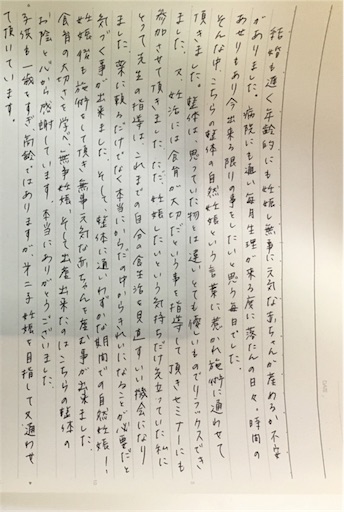 結婚も遅く年齢的にも妊娠し無事に元気な赤ちゃんが産めるか不安
がありました。病院にも通い毎月生理が来る度に落たんの日々。時間の
あせりもあり今出来る限りの事をしたいと思う毎日でした。
そんな中、こちらの整体の自然妊娠という言葉に惹かれ施術に通わせて
頂きました。整体は、思っていた物とは違い、とても優しいものでリラックスでき
ました。又、妊活には食育が大切だという事を指導して頂きセミナーにも
参加させて頂きました。ただ、妊娠したいという気持ちだけ先立っていた私に
とって先生の指導は、これまでの自分の食生活を見直すいい機会になり
ました。薬に頼るだけでなく本当にからだの中からきれいになることが必要だと
気づく事が出来ました。そして、整体に通いわずかな期間での自然妊娠！
妊娠後も施術をして頂き無事に元気な赤ちゃんを産む事が出来ました。
食育の大切さを学べ、無事妊娠、そして出産出来たのはこちらの整体の
お陰と心から感謝しています。本当にありがとうございました。
子供も一歳をすぎ、高齢ではありますが第二子妊娠を目指して又通わせ
て頂いています。